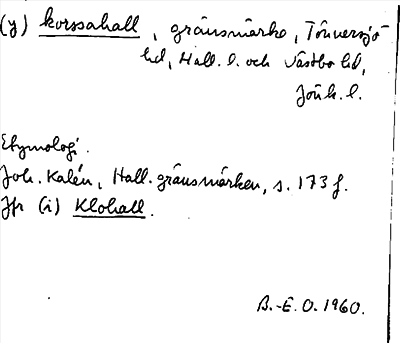 (y) korssahall, gränsmärke, Tönnersjö
hd, Hall. l. och Västbo hd,
Jönk. l.
Etymologi.
Joh. Kalén, Hall. gränsmärken, s. 173 f.
Jfr (i) Klohall.
B.-E. O. 1960.